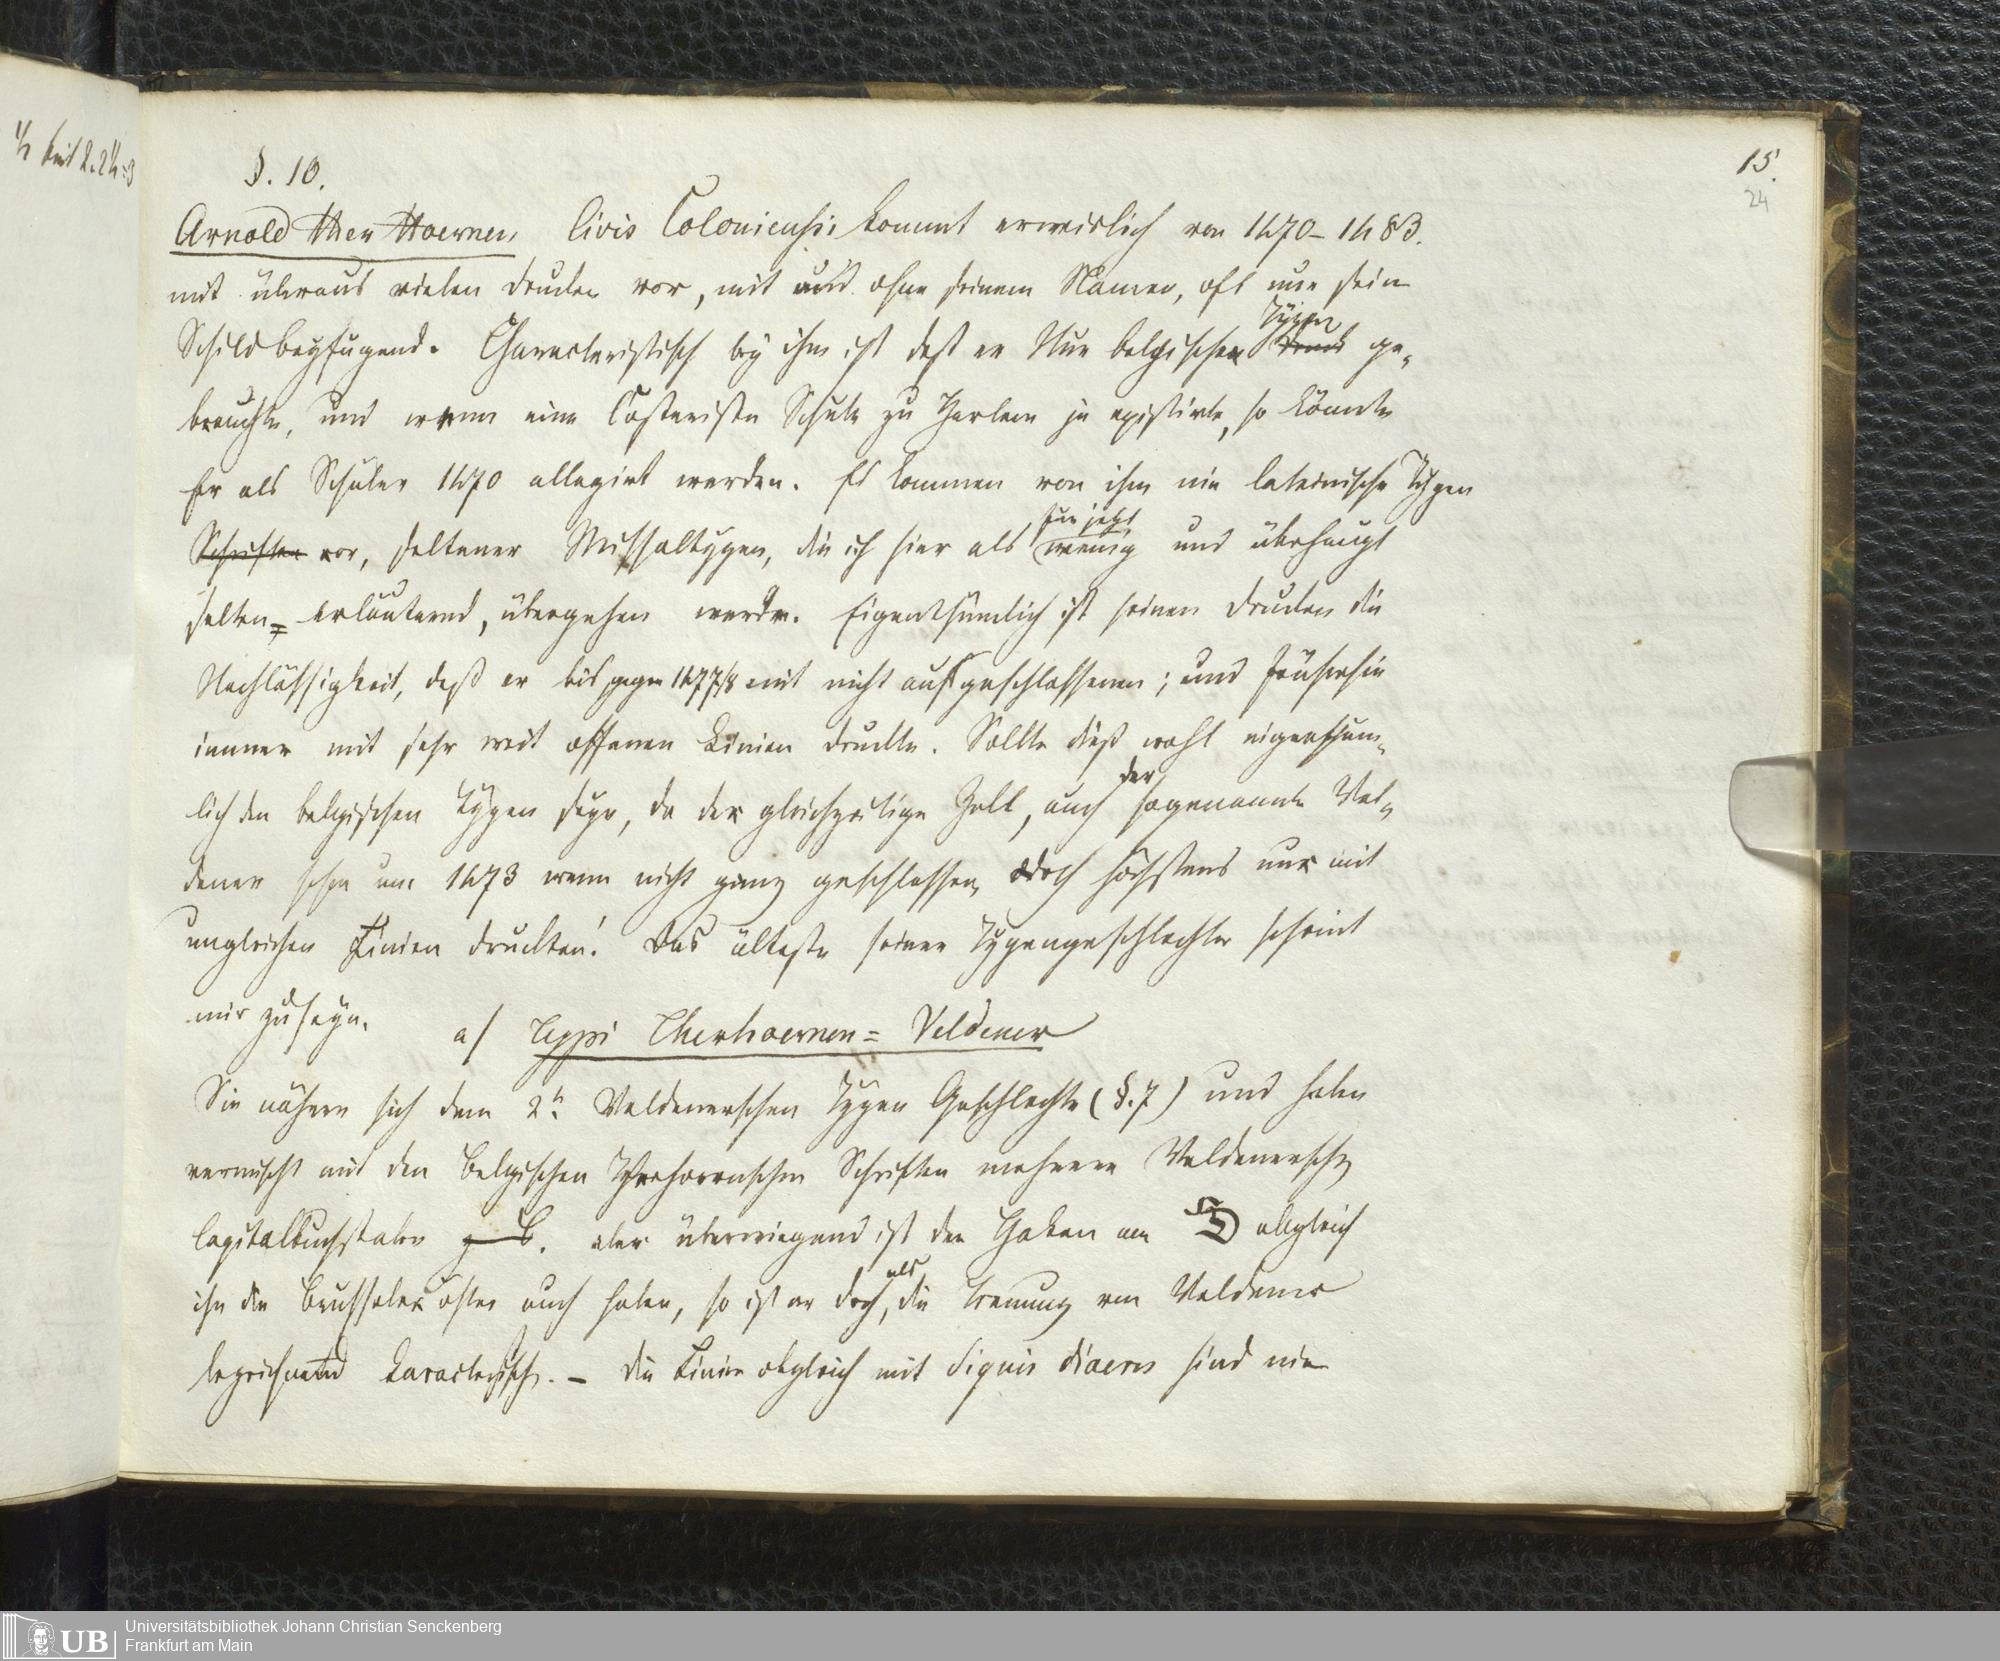 1/2 breit 2. 2 1/2 = 3
15.
24
§. 10.
Arnold ther Hoernen, Civis Coloniensis kommt erweislich von 1470–1483.
mit überaus vielen Drucken vor, mit und ohne seinem Namen, oft nur sein
Schild beyfugend. Characteristisch bey ihm ist dass er Nur belgischen Druck Typen ge„
brauchte, und wenn eine Costerische Schule zu Harlem je existirte, so könnte
Er als Schuler 1470 allegirt werden. Es kommen von ihm nie lateinische Typen
Schriften vor, seltener Missaltypen, die ich hier als für jetzt wenig und überhaupt
selten = erläuternd, übergehen werde. Eigenthümlich ist seinen Drucken die
Nachlässigkeit, dass er bis gegen 1477/8 mit nicht ausgeschlossenen; und früherhin
immer mit sehr weit offenen Linien druckte. Sollte diess wohl eigenthum„
lich den belgischen Typen seyn, da der gleichzeitige Zell, auch der sogenannte Vel„
dener schon um 1473 wenn nicht ganz geschlossen, doch höchstens nur mit
ungleichen Linien druckten! Das älteste seiner Typengeschlechter scheint
mir zu seyn.
a/ Typi Therhoernen = Veldener
Sie nähern sich dem 2n Veldenerschen Typen Geschlechte (§. 7) und haben
vermischt mit den belgischen Therhoernschen Schriften mehrere Veldenersche
Capitalbuchstaben z. B. aber überwiegend ist der Haken am D obgleich
ihn die Brüsseler öfter auch haben, so ist er doch, als die Trennung von Veldener
bezeichnend karacteristisch. – Die Linien obgleich mit Signis diaeres sind nie